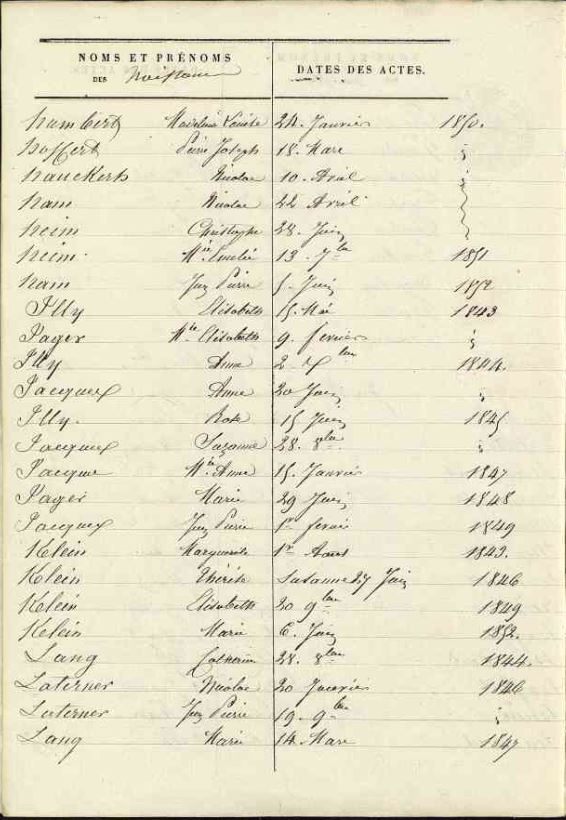 NOMS ET PRÉNOMS DATES DES ACTES.
DES Naissances
Hambert Madeleine Louise 24. Janvier 1850.
Hoffert Pierre Joseph 18. Mars "
Hauckert Nicolas 10. Avril "
Ham Nicolas 22 Avril
Heim Christophe 28. Juin
Heim Mie Emelie 13. 7bre 1851
Ham Jn Pierre 5. Juin 1852
Illy Elisabeth 15. Mai 1843
Jager Mie Elisabeth 9. fevrier "
Illy Anne 2. Xbre 1844.
Jacques Anne 20 Juin "
Illy. Rose 15 Juin 1845
Jacques Suzanne 28. 8bre "
Jacque Mie Anne 15. Janvier 1847
Jager Marie 29 Juin 1848
Jacques Jn Pierre 1er fevrier 1849
Klein Marguerite 1er Aout 1843.
Klein Thérèse Susanne 27 Juin 1846
Klein Elisabeth 20 9bre 1849
Klein Marie 6. Juin 1852.
Lang Catherine 28. 8bre 1844.
Laterner Nicolas 20 Janvier 1846
Laterner Jn Pierre 19. 9bre "
Lang Marie 14. Mars 1847